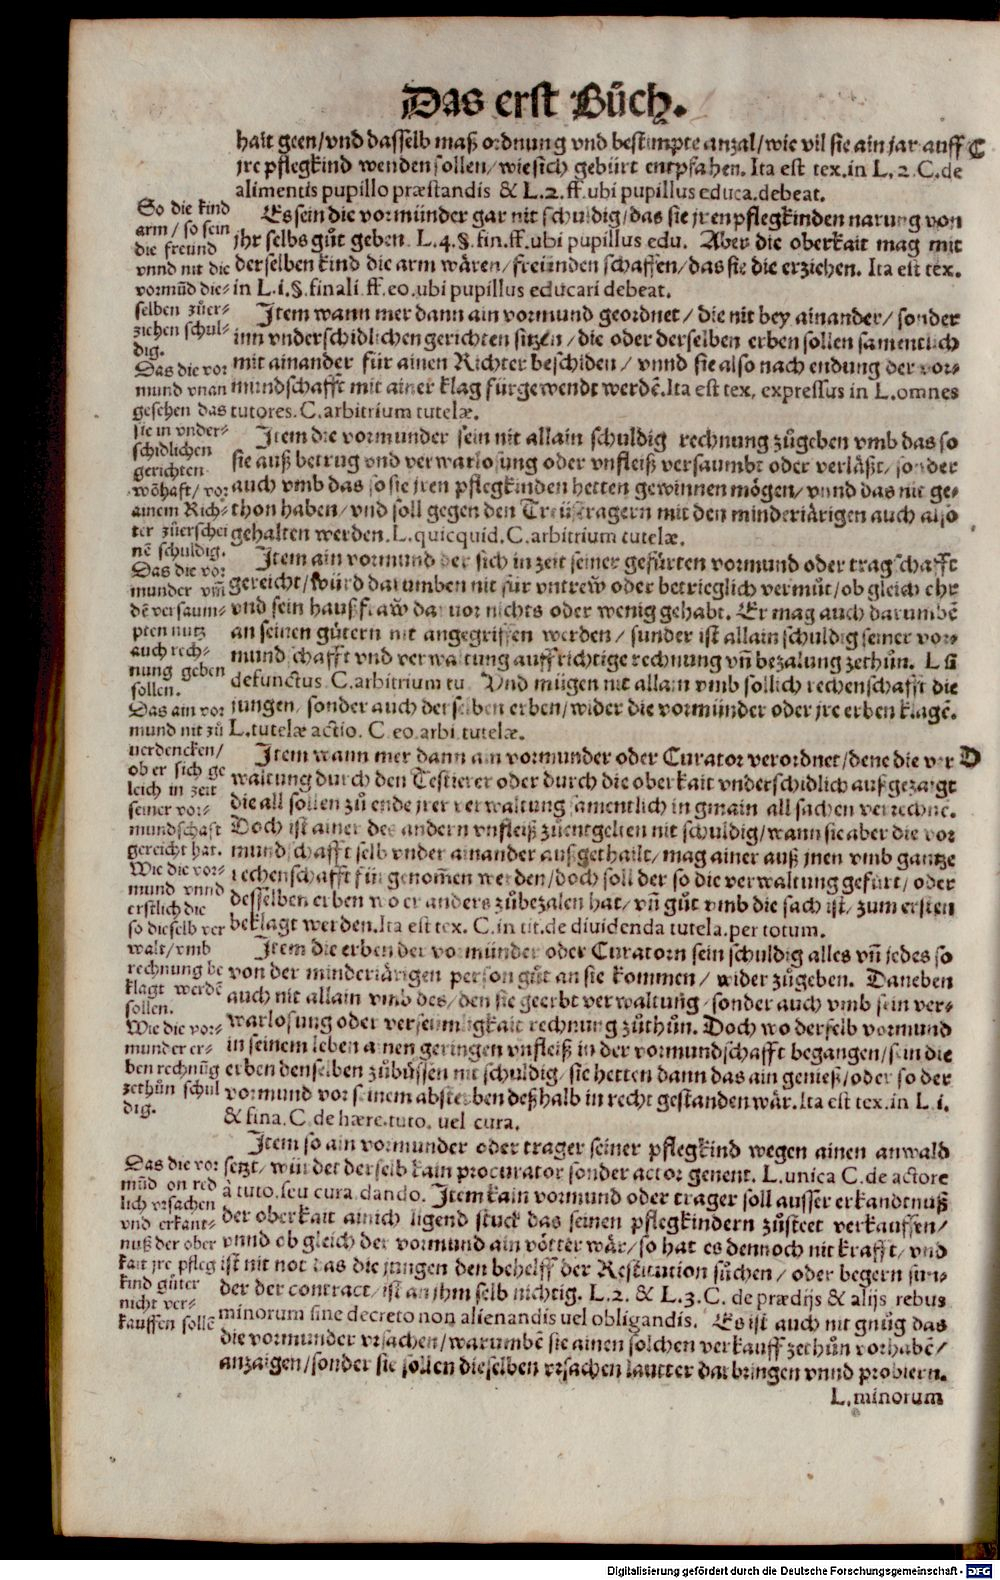 Das erst Bůch.
hait geen/vnd dasselb maß ordnung vnd bestimpte anzal/wie vil sie ain jar auff C
jre pflegkind wenden sollen/wie sich gebürt entpfahen. Ita est tex.in L.2.C.de
alimentis pupillo præstandis & L.2.ff.ubi pupillus educa.debeat.
Es sein die vormünder gar nit schuldig/das sie jren pflegkinden narung von
jhr selbs gůt geben. L.4.§.fin.ff.ubi pupillus edu. Aber die oberkait mag mit
derselben kind die arm wären/freünden schaffen/das sie die erziehen. Ita est tex.
in L.i.§.finali ff.eo.ubi pupillus educari debeat.
Item wann mer dann ain vormund geordnet/die nit bey ainander/sonder
inn vnderschidlichen gerichten sitzen/die oder derselben erben sollen samentlich
mit ainander für ainen Richter beschiden/vnnd sie also nach endung der vor-
mundschafft mit ainer klag fürgewendt werdē.Ita est tex. expressus in L.omnes
tutores.C.arbitrium tutelæ.
Item die vormunder sein nit allain schuldig rechnung zůgeben vmb das so
sie auß betrug vnd verwarlosung oder vnfleiß versaumbt oder verläßt/sonder
auch vmb das so sie jren pflegkinden hetten gewinnen mögen/vnnd das nit ge-
thon haben/vnd soll gegen den Treüttragern mit den minderjärigen auch also
gehalten werden.L.quicquid.C.arbitrium tutelæ.
Item ain vormund der sich in zeit seiner gefürten vormund oder tragschafft
gereicht/würd darumben nit für vntrew oder betrieglich vermůt/ob gleich ehr
vnd sein haußfraw daruor nichts oder wenig gehabt. Er mag auch darumbē
an seinen gůtern nit angegriffen werden/sunder ist allain schuldig seiner vor-
mundschafft vnd verwaltung auffrichtige rechnung vñ bezalung zethůn. L si
defunctus.C.arbitrium tu. Vnd mügen nit allain vmb sollich rechenschafft die
jungen/sonder auch derselben erben/wider die vormünder oder jre erben klagē.
L.tutelæ actio. C eo.arbi.tutelæ.
Item wann mer dann ain vormunder oder Curator verordnet/dene die ver D
waltung durch den Testierer oder durch die oberkait vnderschidlich außgezaigt
die all sollen zů ende jrer verwaltung samentlich in gmain all sachen verrechnē.
Doch ist ainer des andern vnfleiß zůentgelten nit schuldig/wann sie aber die vor
mundschafft selb vnder ainander außgethailt/mag ainer auß jnen vmb gantze
rechenschafft fürgenom̄en werden/doch soll der so die verwaltung gefürt/oder
desselben erben wo er anders zůbezalen hat/vñ gůt vmb die sach ist/zum ersten
beklagt werden.Ita est tex. C.in tit.de diuidenda tutela.per totum.
Item die erben der vormünder oder Curatorn sein schuldig alles vñ jedes so
von der minderjärigen person gůt an sie kommen/wider zůgeben. Daneben
auch nit allain vmb des/den sie geerbt verwaltung/sonder auch vmb sein ver-
warlosung oder verseümligkait rechnung zůthůn. Doch wo derselb vormund
in seinem leben ainen geringen vnfleiß in der vormundschafft begangen/sein die
erben denselben zůbüssen nit schuldig/sie hetten dann das ain genieß/oder so der
vormund vor seinem absterben deßhalb in recht gestanden wär.Ita est tex.in L.i.
& fina.C.de hære.tuto. uel cura.
Item so ain vormunder oder trager seiner pflegkind wegen ainen anwald
setzt/würdet derselb kain procurator sonder actor genent. L.unica C.de actore
à tuto.seu cura.dando. Item kain vormund oder trager soll ausser erkandtnuß
der oberkait ainich ligend stuck das seinen pflegkindern zůsteet verkauffen/
vnnd ob gleich der vormund ain vötter wär/so hat es dennoch nit krafft/vnd
ist nit not das die jungen den behelff der Restitution sůchen/oder begern sun-
der der contract/ist an jhm selb nichtig. L.2. & L.3.C. de prædijs & alijs rebus
minorum sine decreto non alienandis uel obligandis. Es ist auch nit gnůg das
die vormunder vrsachen/warumbē sie ainen solchen verkauff zethůn vorhabē/
anzaigen/sonder sie sollen dieselben vrsachen lautter darbringen vnnd probiern.
L.minorum
So die kind
arm/so sein
die freund
vnnd nit die
vormūd die-
selben zůer-
ziehen schul-
dig.
Das die vor
mund vnan
gesehen das
sie in vnder-
schidlichen
gerichten
wōhaft/vor
ainem Rich-
ter zůerschei
nē schuldig.
Das die vor
munder vm̄
dē versaum-
pten nutz
auch rech-
nung geben
sollen.
Das ain vor
mund nit zů
uerdencken/
ob er sich ge
leich in zeit
seiner vor-
mundschaft
gereicht hat.
Wie die vor-
mund vnnd
erstlich die
so dieselb ver
walt/vmb
rechnung be
klagt werdē
sollen.
Wie die vor-
munder er-
ben rechnūg
zethůn schul
dig.
Das die vor
mūd on red
lich vrsachen
vnd erkant-
nuß der ober
kait jre pfleg
kind gůter
nicht ver-
kauffen sollē
Digitalisierung gefördert durch die Deutsche Forschungsgemeinschaft - DFG